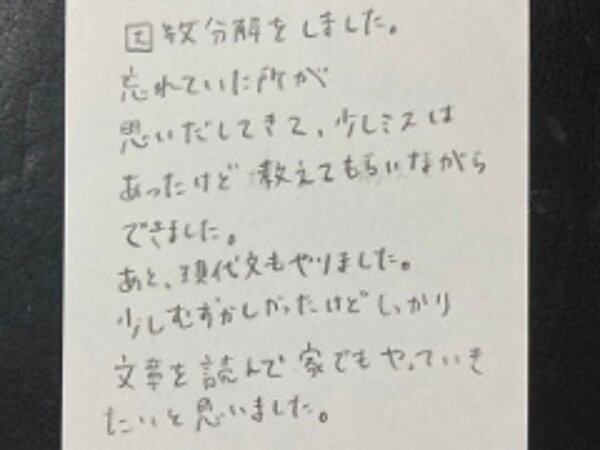 因数分解をしました。
忘れていた所が
思いだしてきて、少しミスは
あったけど教えてもらいながら
できました。
あと、現代文もやりました。
少しむずかしかったけどしっかり
文章を読んで家でもやっていき
たいと思いました。